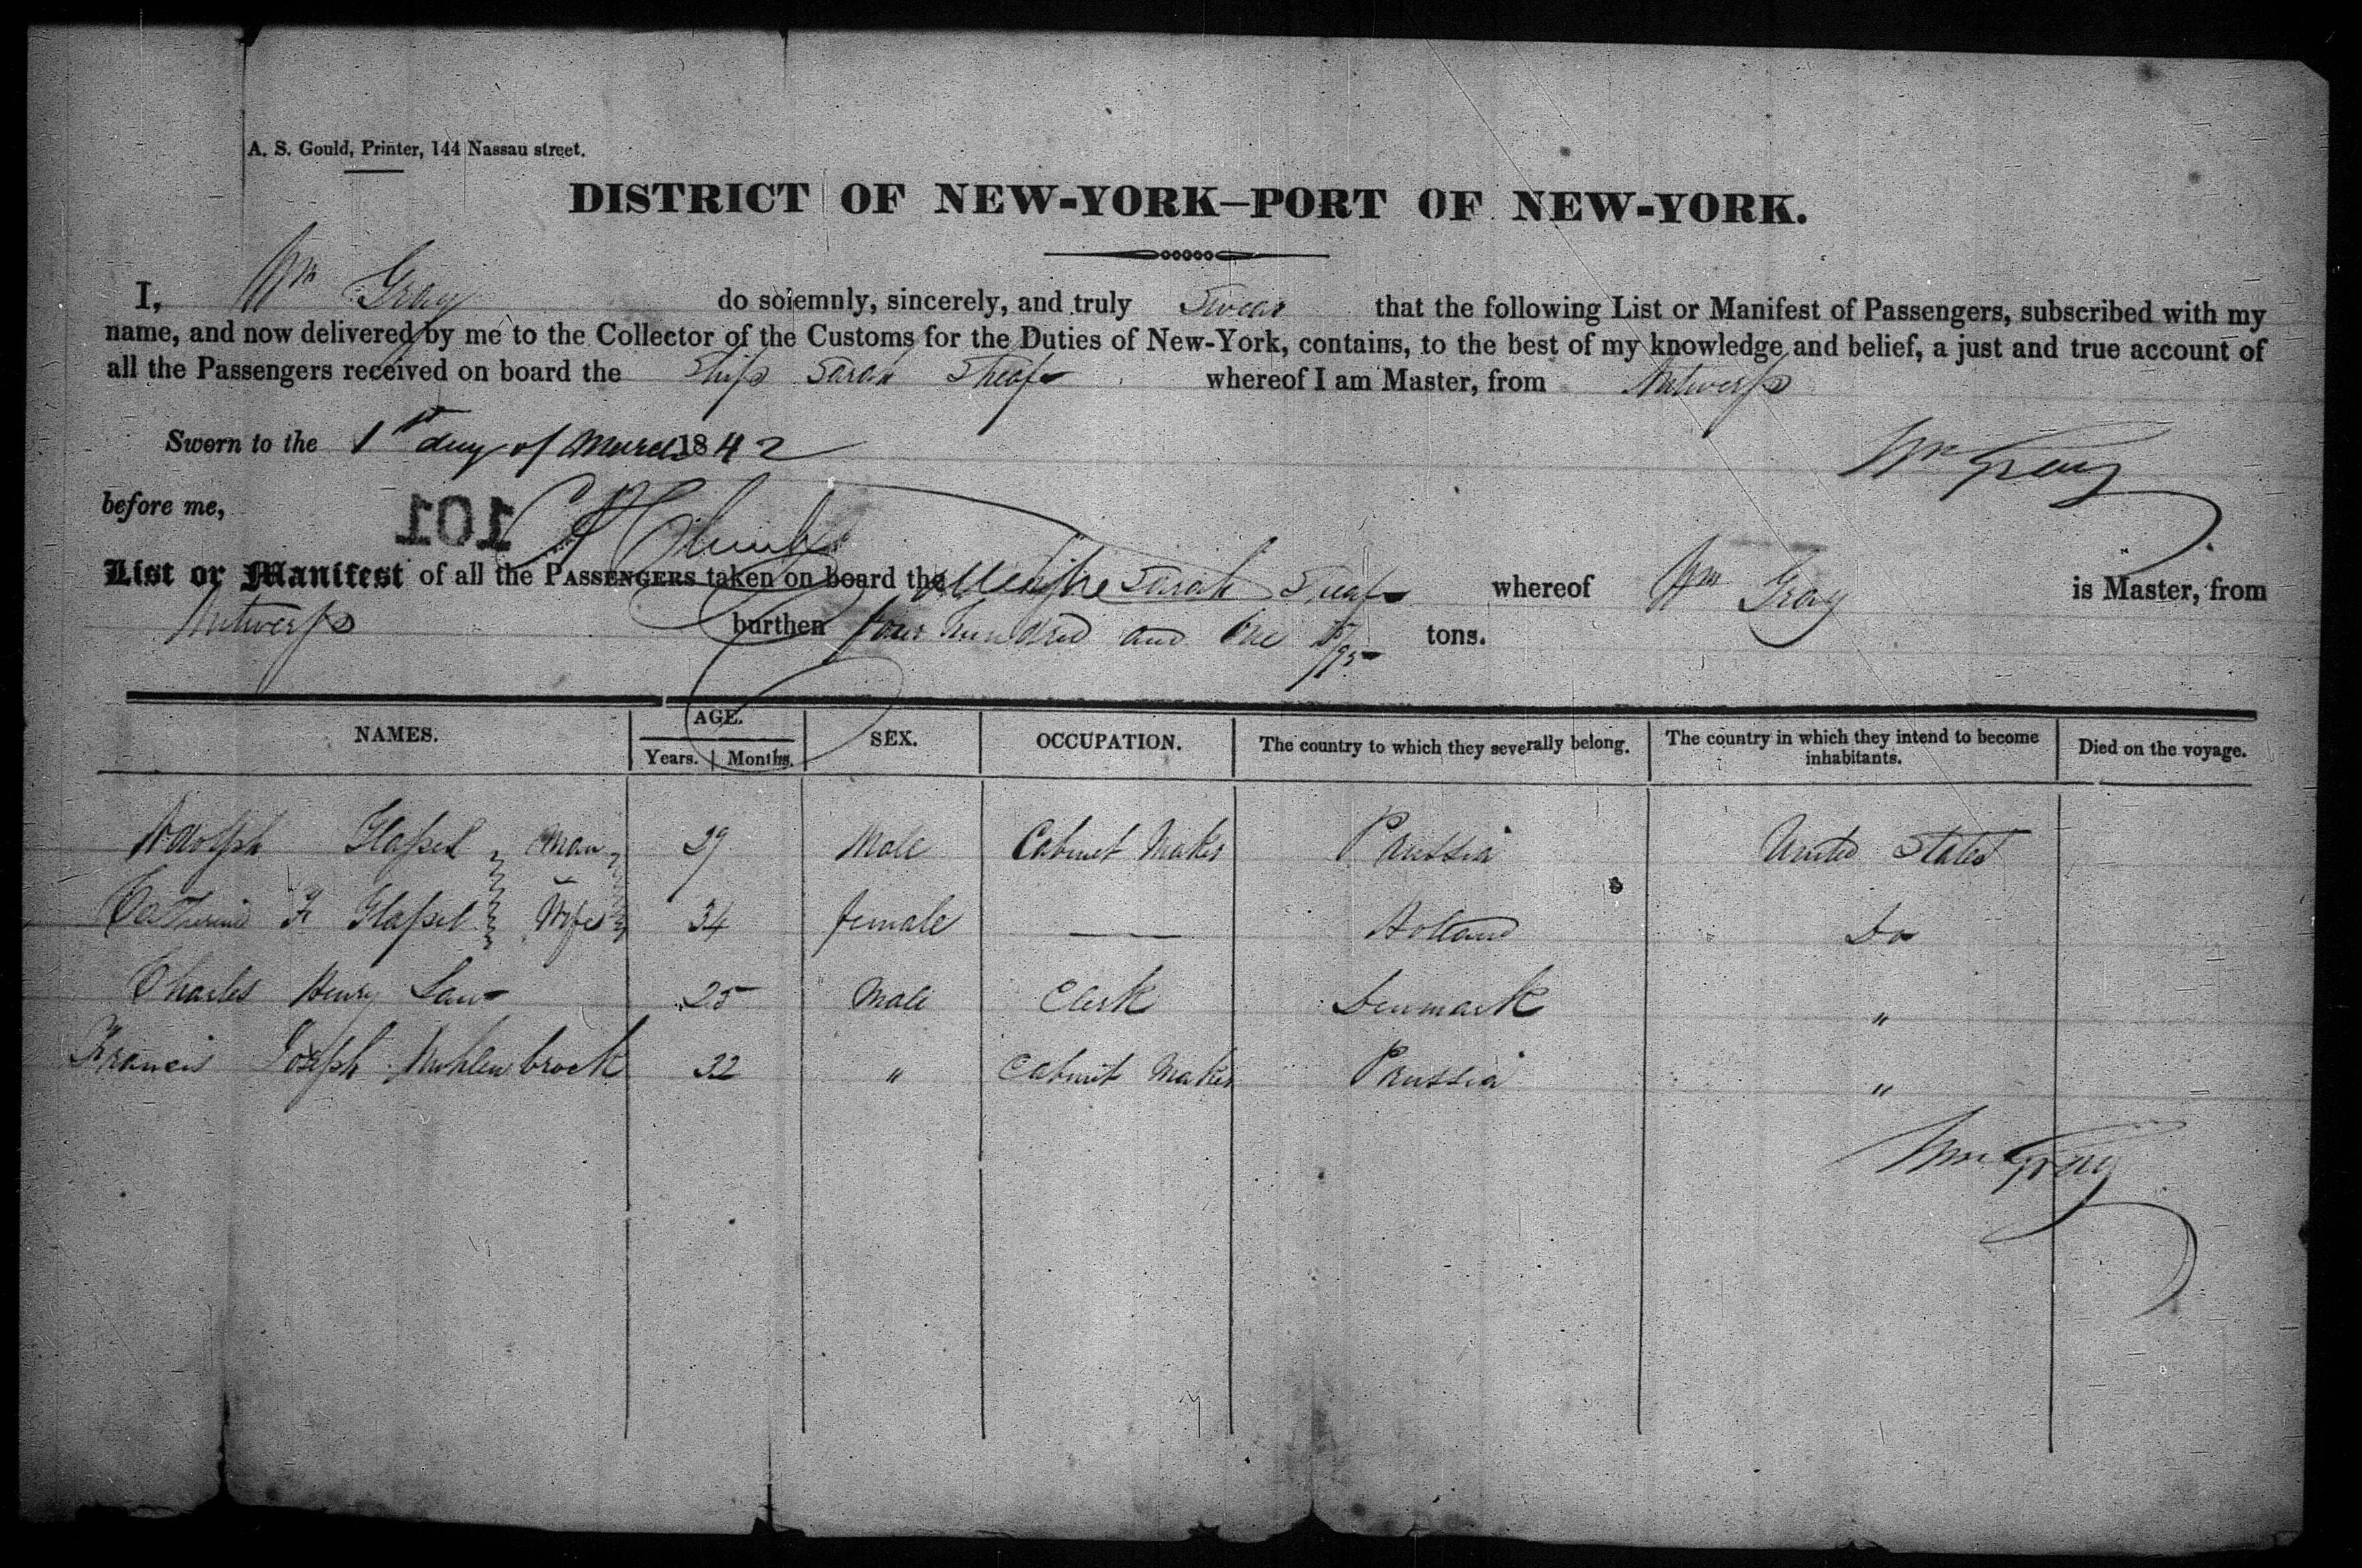 A. S. Gould, Printer, 144 Nassau street.
DISTRICT OF NEW-YORK—PORT OF NEW-YORK.
I, Wm Gray do solemnly, sincerely, and truly Swear that the following List or Manifest of Passengers, subscribed with my
name, and now delivered by me to the Collector of the Customs for the Duties of New-York, contains, to the best of my knowledge and belief, a just and true account of
all the Passengers received on board the Ship Sarah Sheafe whereof I am Master, from Antwerp
Sworn to the 1st day of March 1842
Wm Gray
before me,
101
List or Manifest of all the PASSENGERS taken on board the Sarah Sheafe whereof Wm Gray is Master, from
Antwerp burthen four hundred and One /95 tons.
NAMES. AGE. Years. Months. SEX. OCCUPATION. The country to which they severally belong. The country in which they intend to become inhabitants. Died on the voyage.
Adolph Glassel Man 29 Male Cabinet Maker Prussia United States
Catherine F Glassel Wife 34 female — Holland Do
Charles Henry 25 Male Clerk Denmark "
Francis Joseph Muhlenbrock 32 " Cabinet Maker Prussia "
Wm Gray